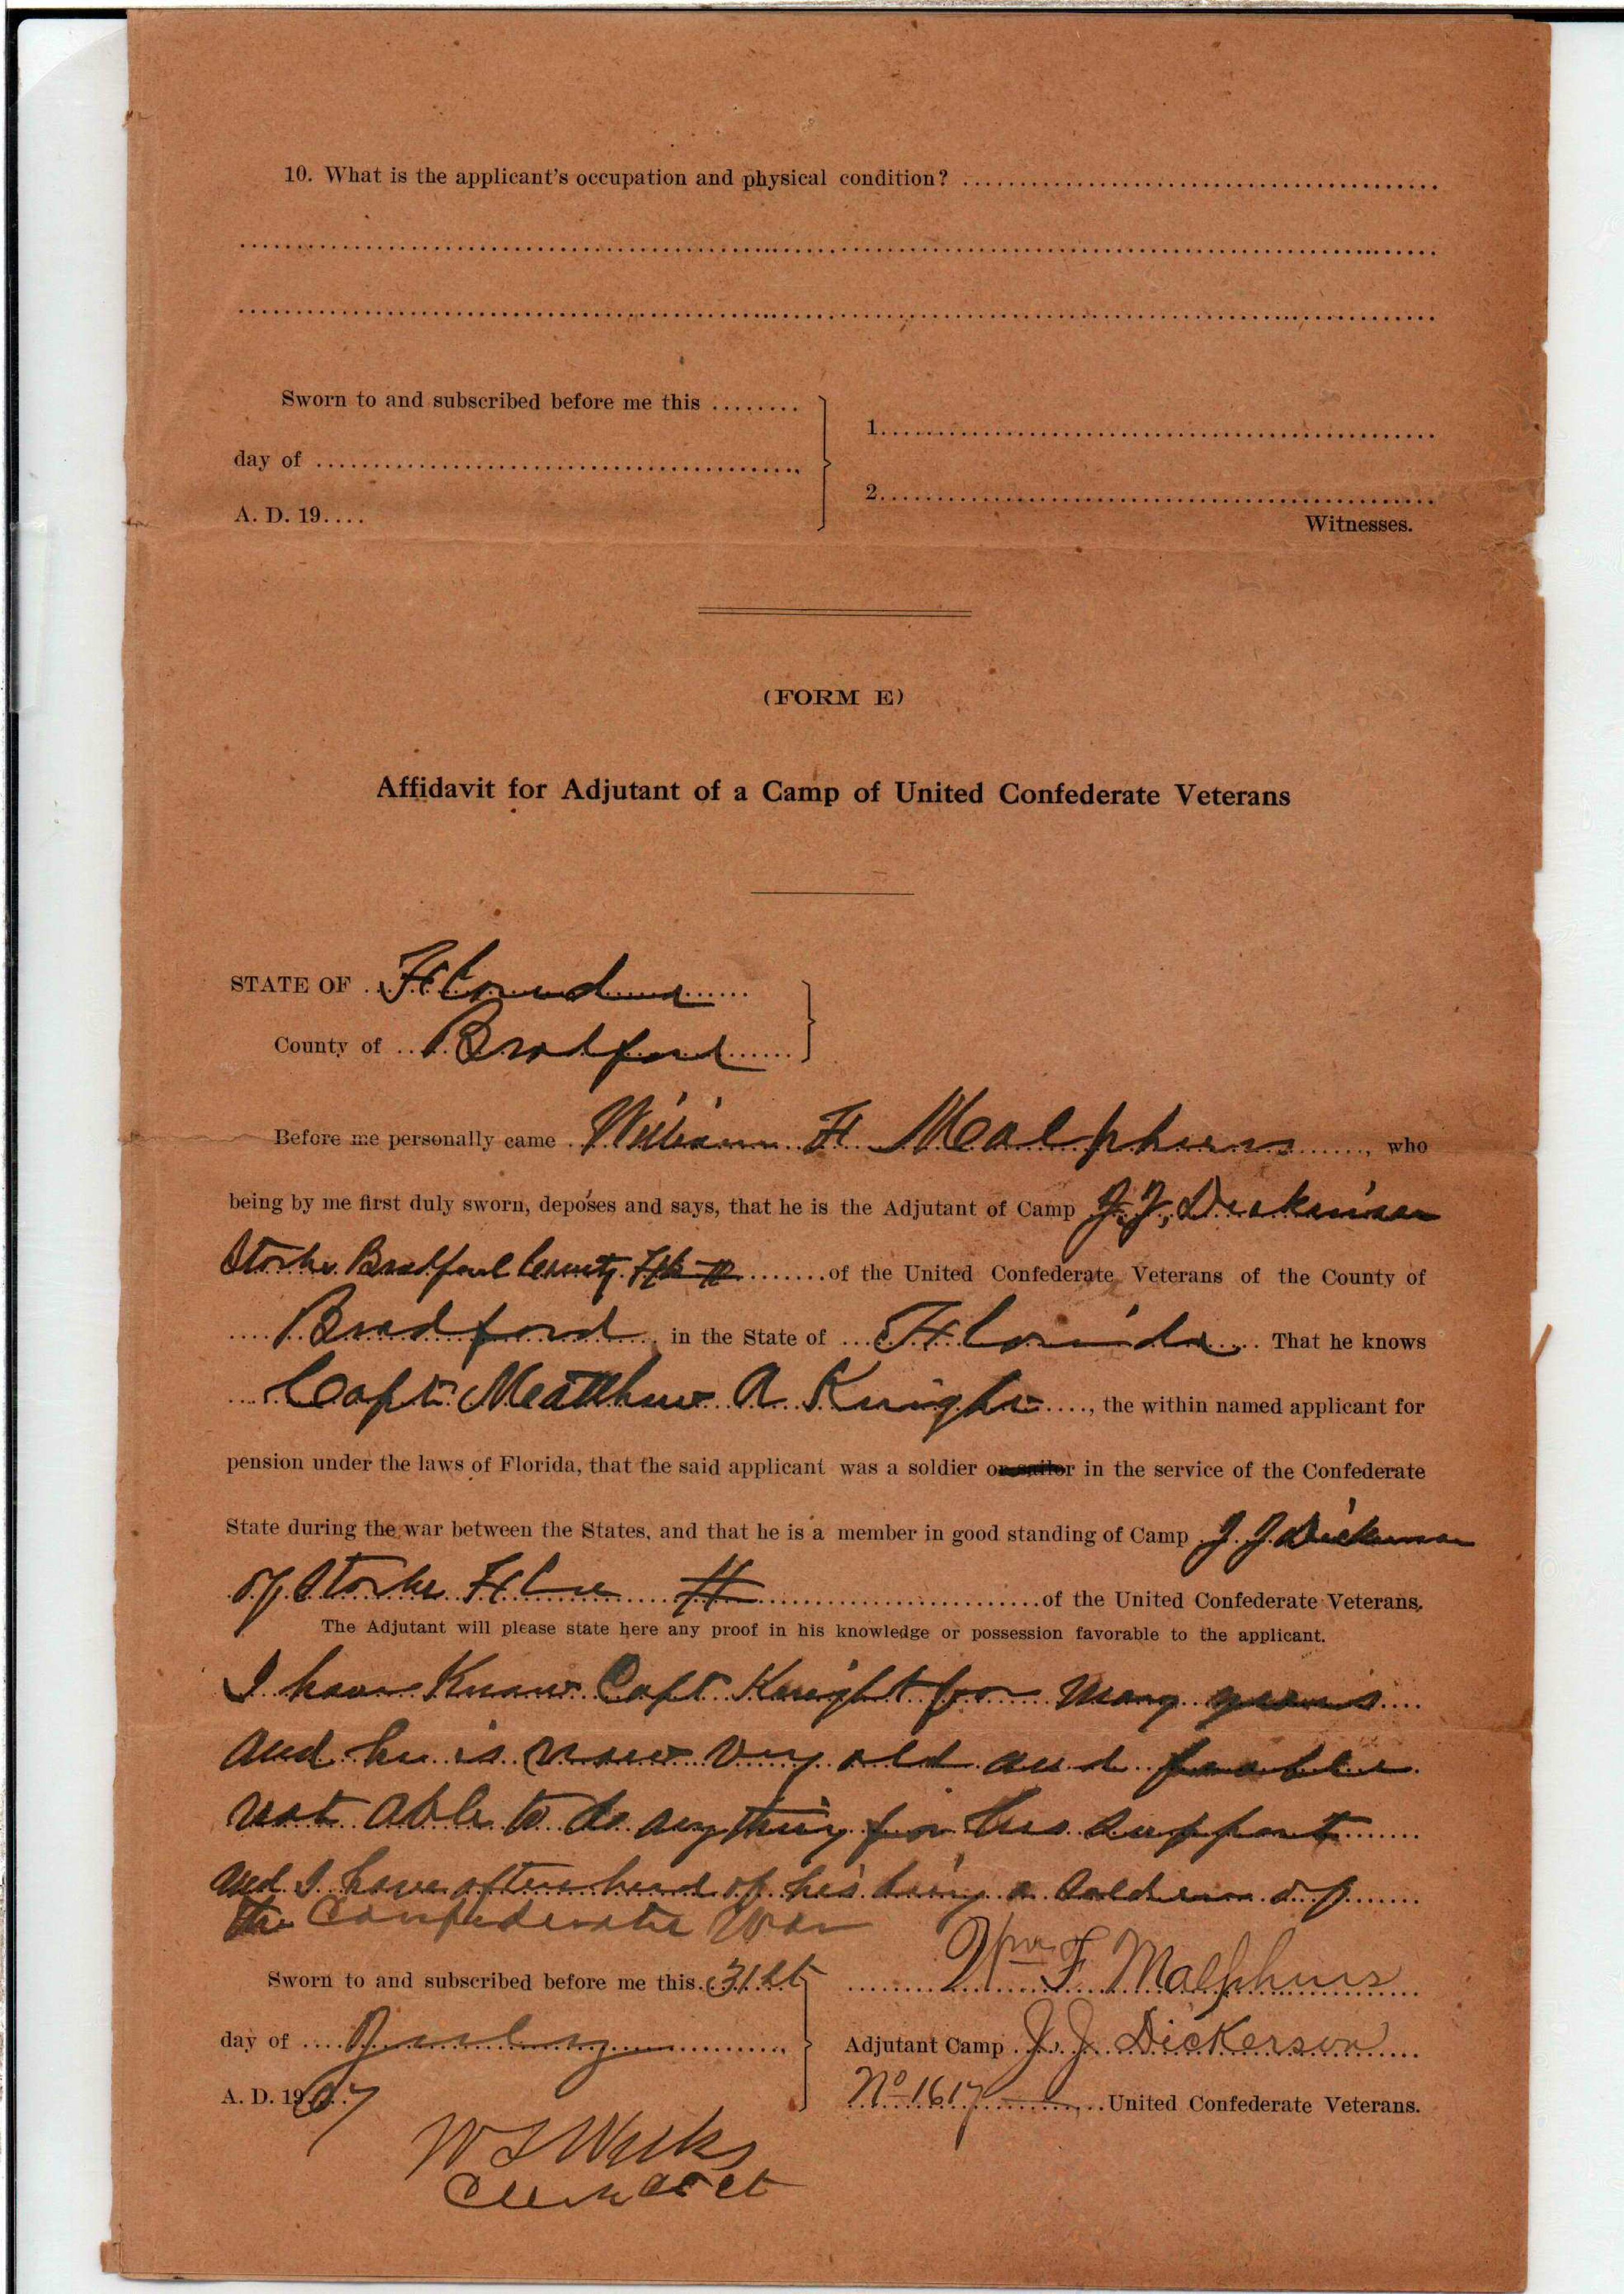 10. What is the applicant's occupation and physical condition? ........................................
................................................................................
................................................................................
Sworn to and subscribed before me this ........
day of ........................................
A. D. 19....
1........................................
2........................................
Witnesses.
(FORM E)
Affidavit for Adjutant of a Camp of United Confederate Veterans
STATE OF Florida
County of Bradford
Before me personally came William F Malphurs, who
being by me first duly sworn, deposes and says, that he is the Adjutant of Camp J. J. Dickinson
Starke Bradford County Fla of the United Confederate Veterans of the County of
Bradford in the State of Florida. That he knows
Capt Matthew A Knight, the within named applicant for
pension under the laws of Florida, that the said applicant was a soldier or sailor in the service of the Confederate
State during the war between the States, and that he is a member in good standing of Camp J. J Dickinson
of Starke Fla of the United Confederate Veterans.
The Adjutant will please state here any proof in his knowledge or possession favorable to the applicant.
I have Know Capt Knight for many years
and he is now very old and feeble
not able to do any thing for his support
and I have often herd of his being a Soldier of
the Confederate War
Sworn to and subscribed before me this 31st
day of July
A. D. 1907
Wm F Malphurs
Adjutant Camp J. J. Dickerson
No 1617 United Confederate Veterans.
W L Weeks
Clerk C Ct